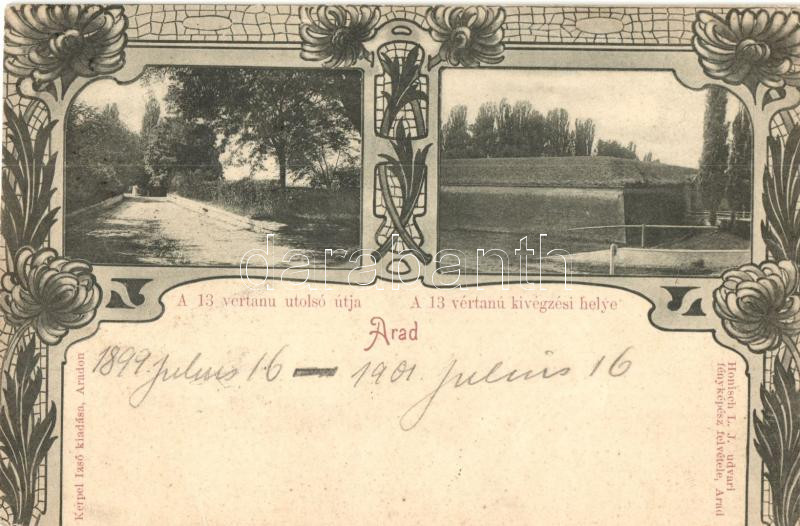 darabanth
A 13 vértanu utolsó útja
A 13 vértanú kivégzési helye
Arad
1899. Julius 16 — 1901. Julius 16
Kerpel Izsó kiadása, Aradon
Honisch L. J. udvari
fényképész felvétele, Arad